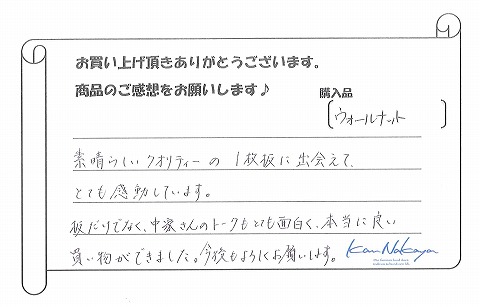 お買い上げ頂きありがとうございます。
商品のご感想をお願いします♪
購入品
〔ウォールナット 〕
素晴らしいクオリティーの1枚板に出会えて、
とても感動しています。
板だけでなく、中家さんのトークもとても面白く、本当に良い
買い物ができました。今後もよろしくお願いします。
Kan Nakaya